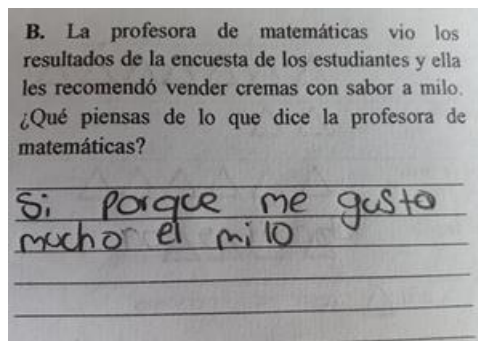 B. La profesora de matemáticas vio los
resultados de la encuesta de los estudiantes y ella
les recomendó vender cremas con sabor a milo.
¿Qué piensas de lo que dice la profesora de
matemáticas?
Si porque me gusto
mucho el milo